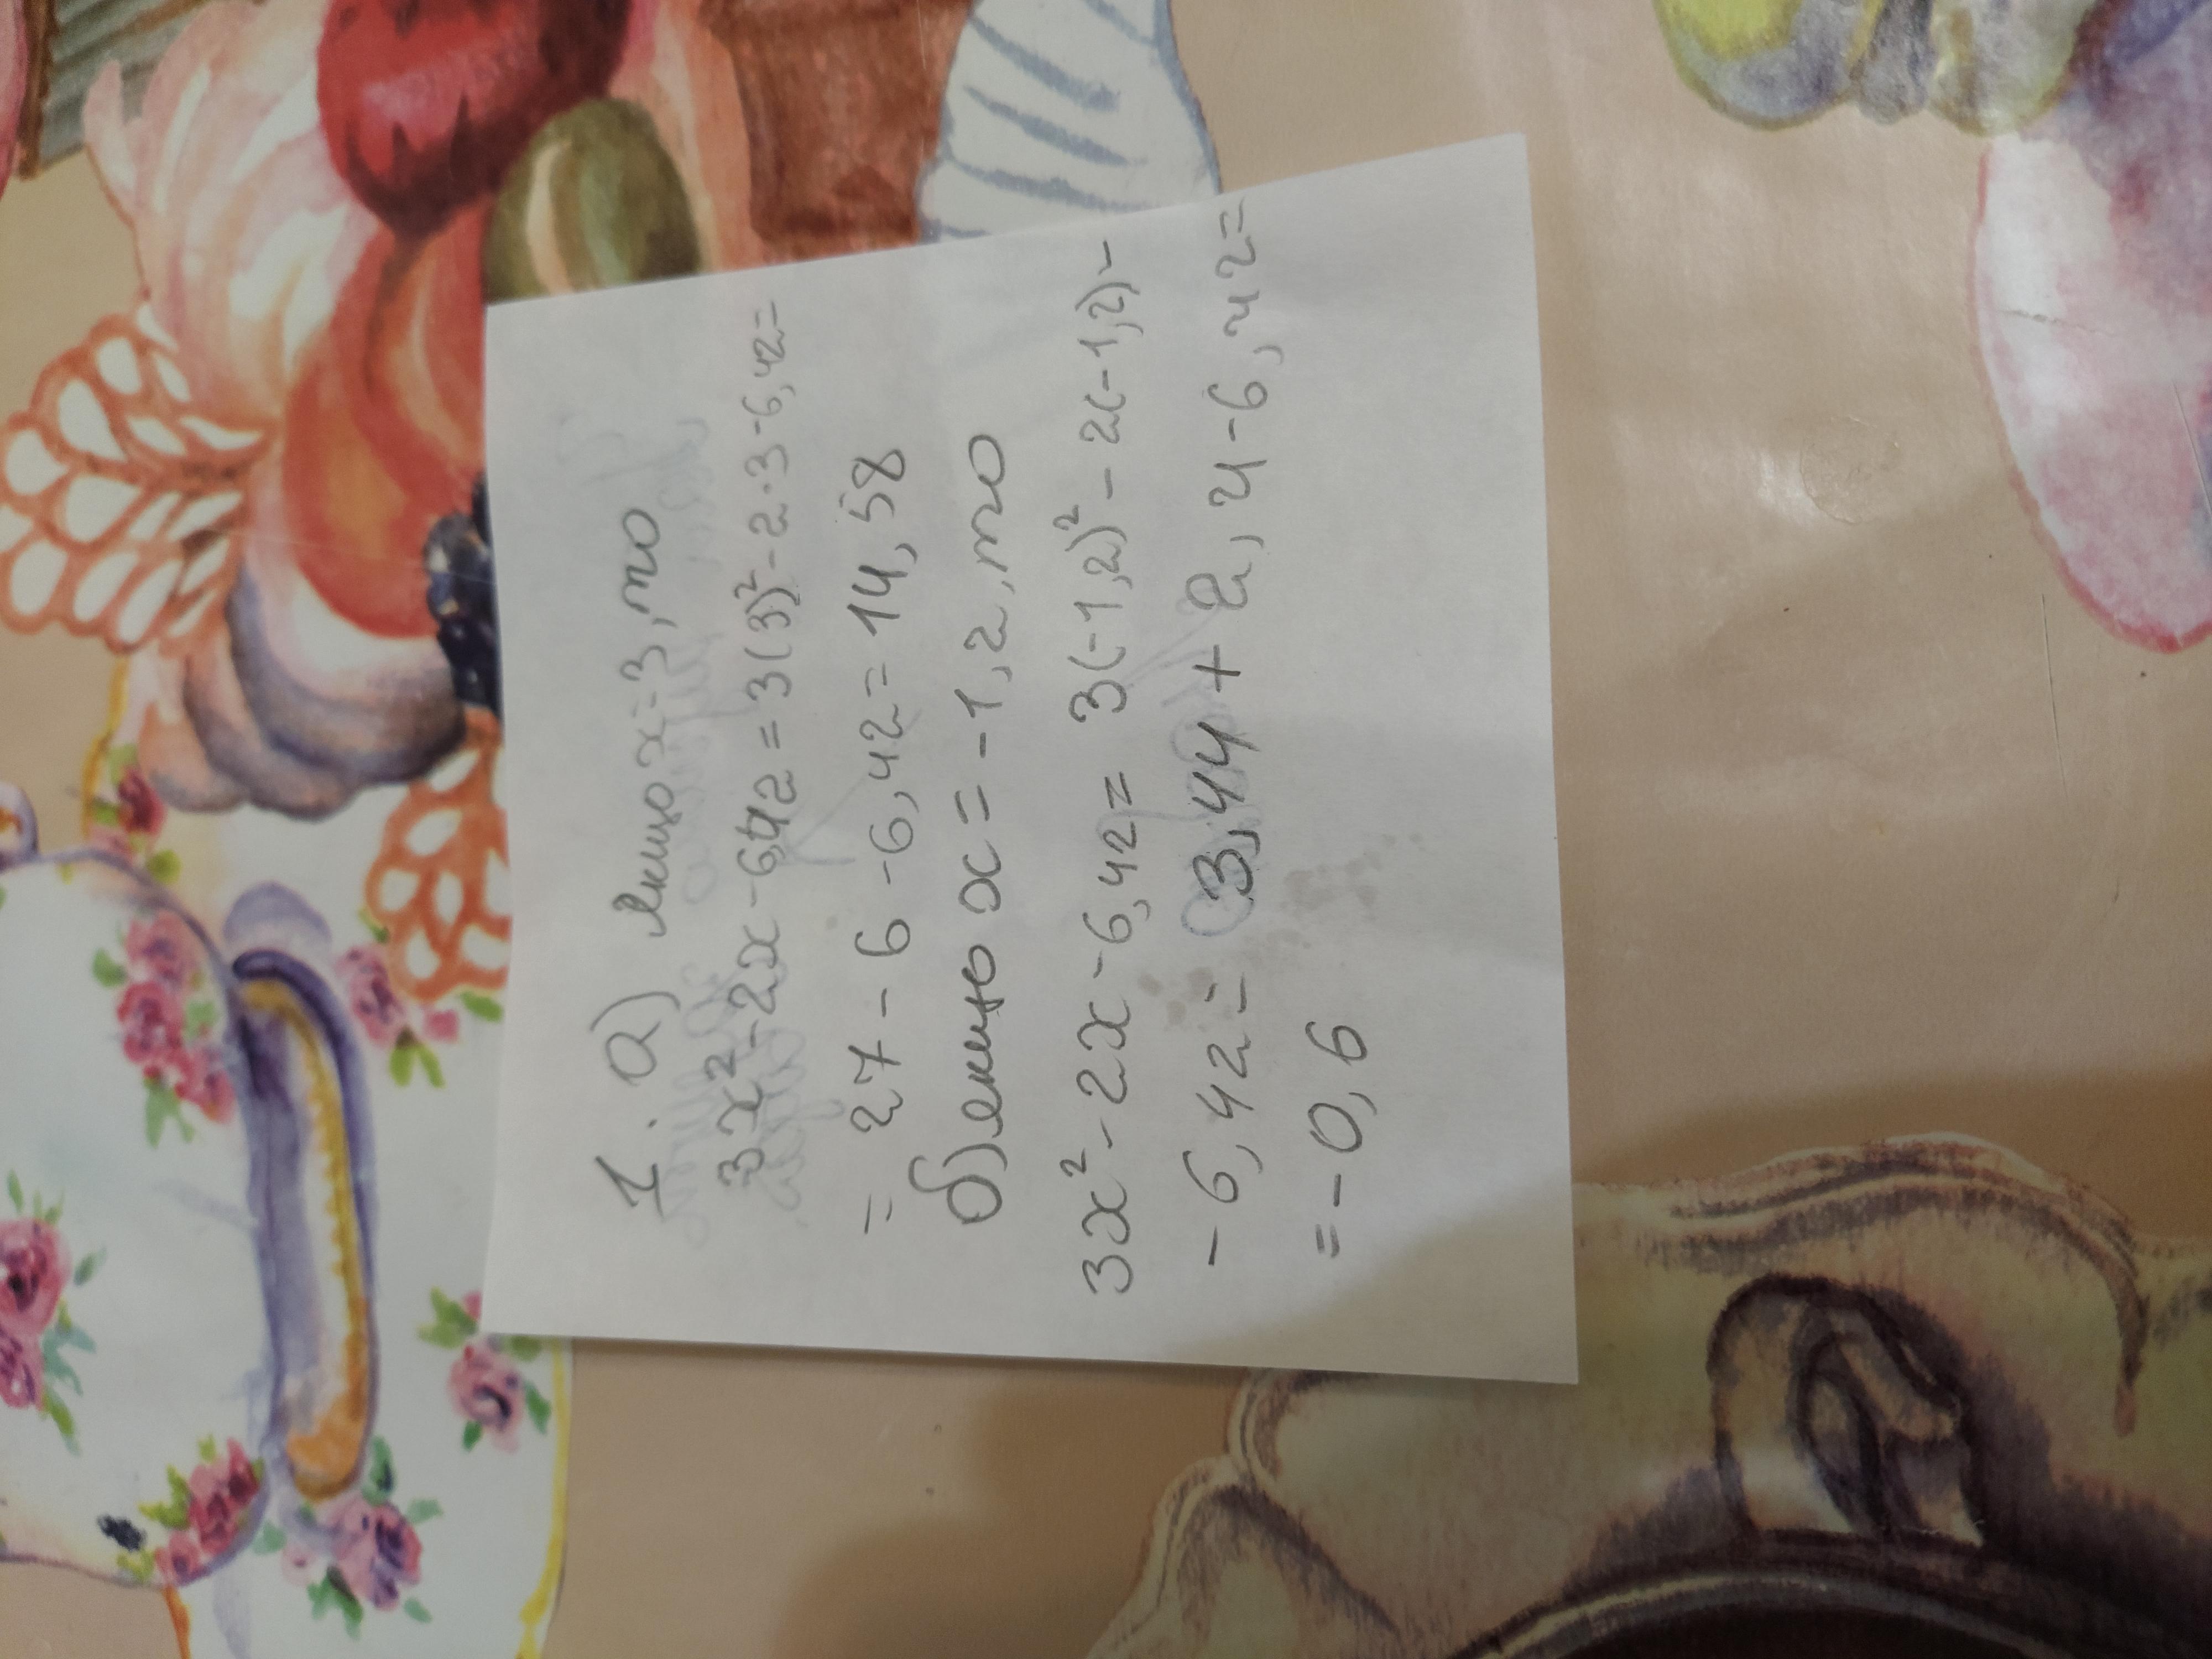 1. а) Якщо x=3, то
3x²-2x-6,42=3(3)²-2·3-6,42=
= 27-6-6,42=14,58
б) якщо x=-1,2, то
3x²-2x-6,42= 3(-1,2)²-2(-1,2)-
-6,42= 3,44+2,4-6,42=
=-0,6